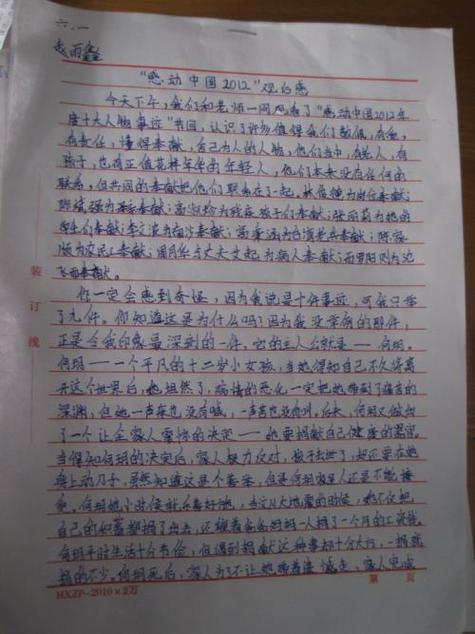 六.一
赵雨鑫
“感动中国2012”观后感
今天下午,我们和老师一同观看了“感动中国2012年
度十大人物事迹”节目,认识了许多值得我们敬佩,有爱,
有责任,懂得奉献,舍己为人的人物,他们当中,有老人,有
孩子,也有正值花样年华的年轻人,他们本来没有任何的
联系,但共同的奉献把他们联系在了一起,林俊德为岗位奉献;
陈斌强为母亲奉献;高淑珍为残疾孩子们奉献;张丽莉为她的
学生们奉献;李文波为南沙奉献;高秉涵为台湾老兵奉献;陈家
顺为农民工奉献;周月华与丈夫艾起为病人奉献;而罗阳则为
飞而奉献。
你一定会感到奇怪,因为我说是十件事迹,可我只写
了九件。你知道这是为什么吗?因为我没举例的那件,
正是令我印象最深刻的一件,它的主人公就是——何玥。
何玥——一个平凡的十二岁小女孩,当她得知自己不久将离
开这个世界后,她坦然了,病情的恶化一定把她带到了痛苦的
深渊,但她一声疼也没有喊,一声苦也没有叫,后来,何玥又做出
了一个让全家人震惊的决定——她要捐献自己健康的器官。
当得知何玥的决定后,家人极力反对,孩子去世了,却还要在她
身上动刀子,虽然知道这是个善举,但是何玥家里人还是不能接
受,何玥她小时候就乐善好施,在汶川大地震的时候,她不仅把
自己的积蓄都捐了出去,还缠着爸爸妈妈一人捐了一个月的工资钱
何玥平时生活十分节俭,但遇到捐献这种事却十分大方,一捐就
捐的不少。何玥死后,家人为了不让她带着遗憾走,家人完成
装
订
线
HXZP-2010×2万
第 页